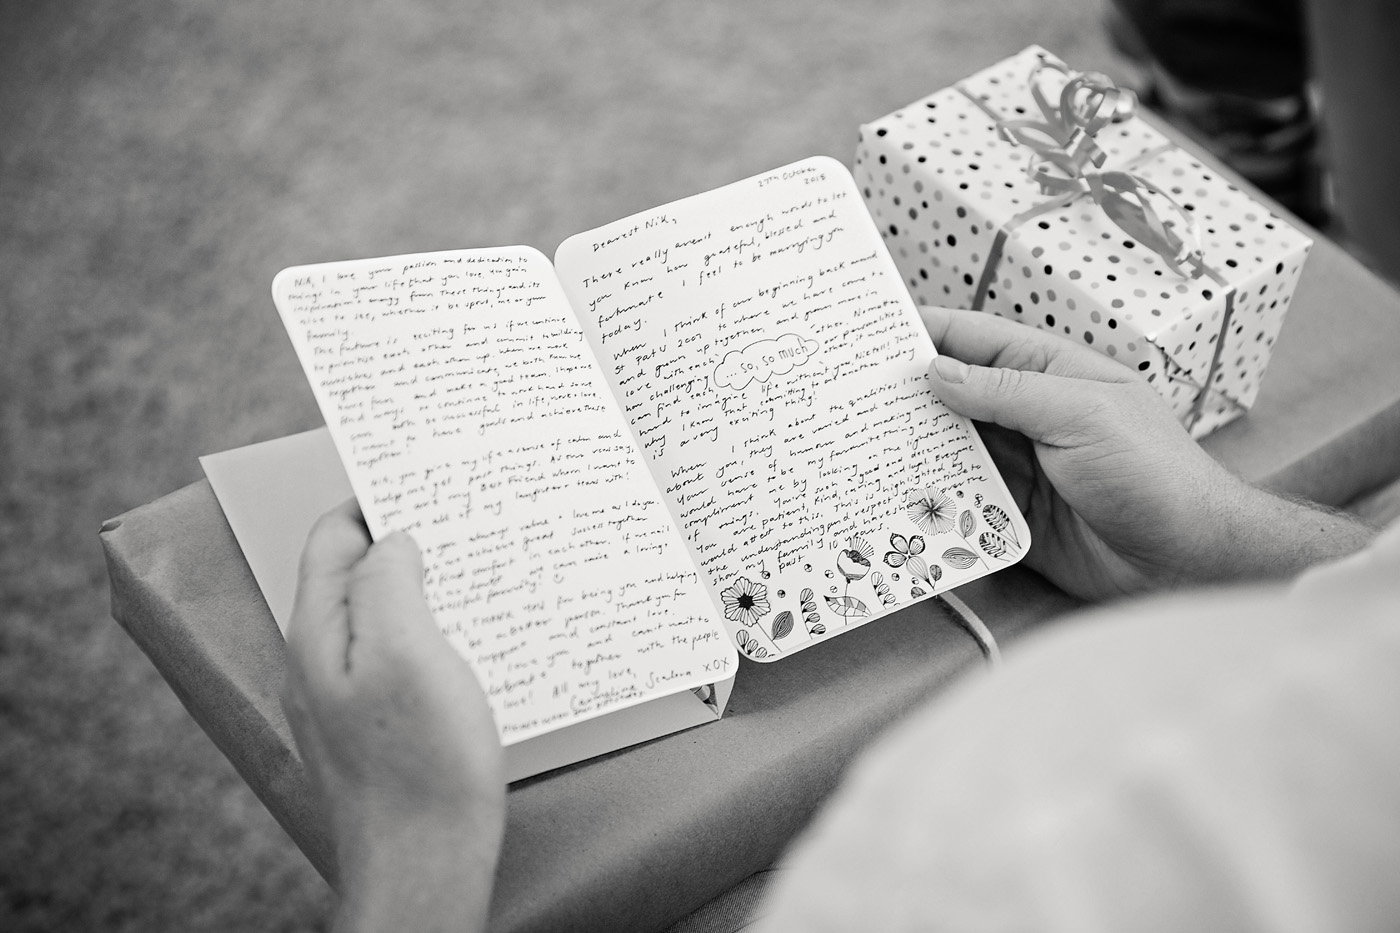 27th October
2018
Dearest Nik,
There really aren't enough words to let
you know how grateful, blessed and
fortunate I feel to be marrying you
today.
When I think of our beginning back around
St Pat's 2009 to where we have come to
and grown up together, and grown more in
love with each other. No matter
... so, so much
how challenging our personalities
can find each other, it would be
hard to imagine life without you, Nik
why I know that committing to one another today
is a very exciting thing!
When I think about the qualities I love
about you, they are varied and extensive.
Your sense of humour and making me
would have to be my favourite thing as you
compliment me by looking on the lighter side
of things. You're such a good and decent man!
You are patient, kind, caring and loyal. Everyone
would attest to this. This is highlighted by
the understanding and respect you continue to
show my family and have over the
past 10 years.
Nik, I love your passion and dedication to
things in your life that you love. You gain
inspiration & energy from these things and its
nice to see, whether it be sport, me or your
family.
The future is exciting for us if we continue
to promise each other and commit to building
ourselves and each other up. When we work
together and communicate, we both
and make a good team. I hope we
find ways to continue to work hard so we
can both be successful in life, work & love.
I want to have goals and achieve these
together!
Nik, you give my life a sense of calm and
help me get past things. As our vows say,
you are my Best Friend whom I want to
share all of my laughter & tears with!
you always value & love me as I do you.
we achieve great success together
find comfort in each other. If we nail
no doubt we can raise a loving,
successful family!
Nik, THANK YOU for being you and helping
be a better person. Thank you for
support and constant love.
I love you and can't wait to
celebrate together with the people
love! All my love,
xox